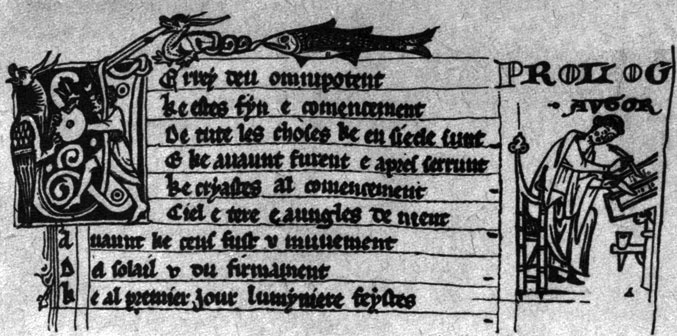 Verrey deu omnipotent
ke estes fyn e comencement
De tute les choses ke en siecle sunt
E ke auaunt furent e aprés serrunt
ke cryastes al comencement
Ciel e tere e aungles de nient
Auaunt ke tens fust v muuement
De solail v du firmament
ke al premier jour lumyniere feystes
PROLOG
AVGOR